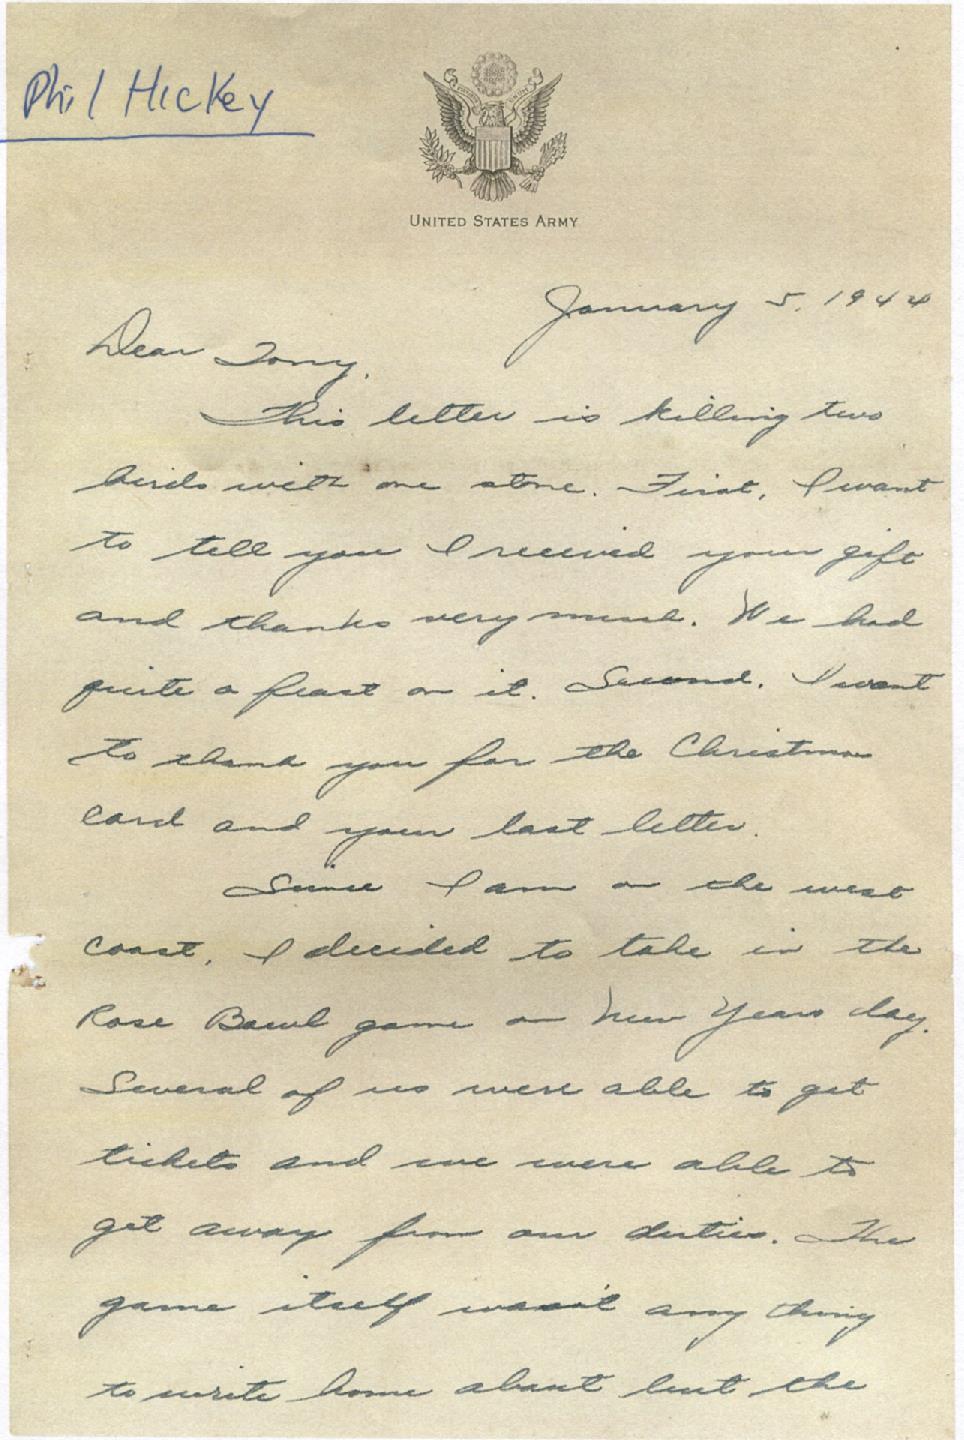 Phil Hickey
UNITED STATES ARMY
January 5, 1944
Dear Tony,
This letter is killing two
birds with one stone. First, I want
to tell you I received your gift
and thanks very much. We had
quite a feast on it. Second, I want
to thank you for the Christmas
card and your last letter.
Since I am on the west
coast, I decided to take in the
Rose Bowl game on New Years day.
Several of us were able to get
tickets and we were able to
get away from our duties. The
game itself wasn't any thing
to write home about but the